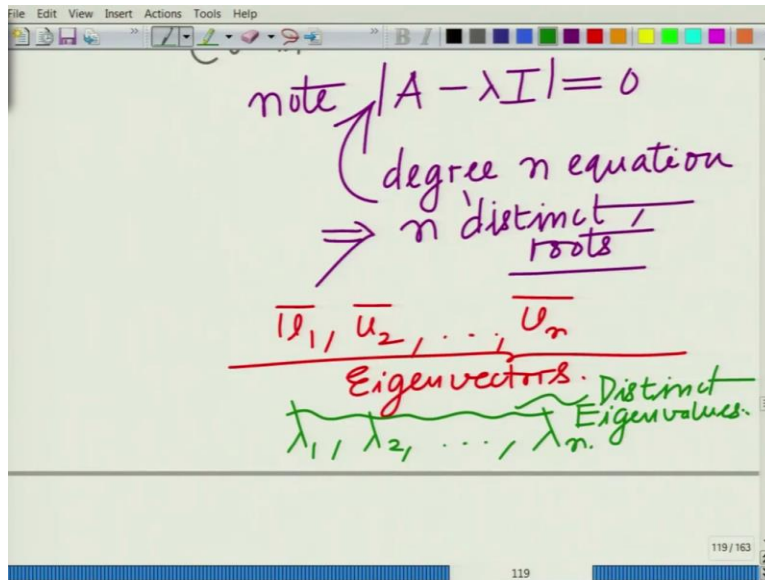 File Edit View Insert Actions Tools Help
B I
note |A − λI| = 0
degree n equation
⇒ n distinct,
roots
u̅₁, u̅₂, ..., u̅ₙ
Eigenvectors.
Distinct
Eigenvalues.
λ₁, λ₂, ..., λₙ.
119 / 163
119